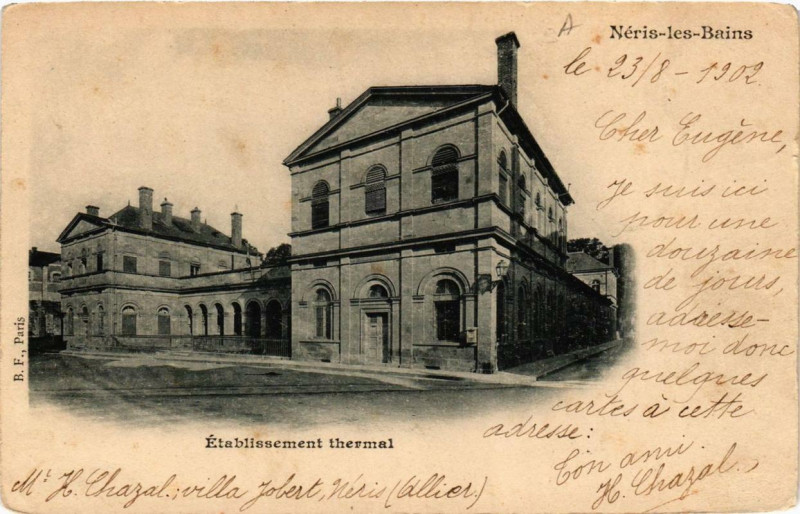 A
Néris-les-Bains
le 23/8 - 1902.
Cher Eugène,
Je suis ici
pour une
douzaine
de jours,
adresse-
moi donc
quelques
cartes à cette
adresse:
Ton ami.
H. Chazal.
B. F., Paris
Établissement thermal
Mr. H. Chazal.; villa Jobert, Néris (Allier.)